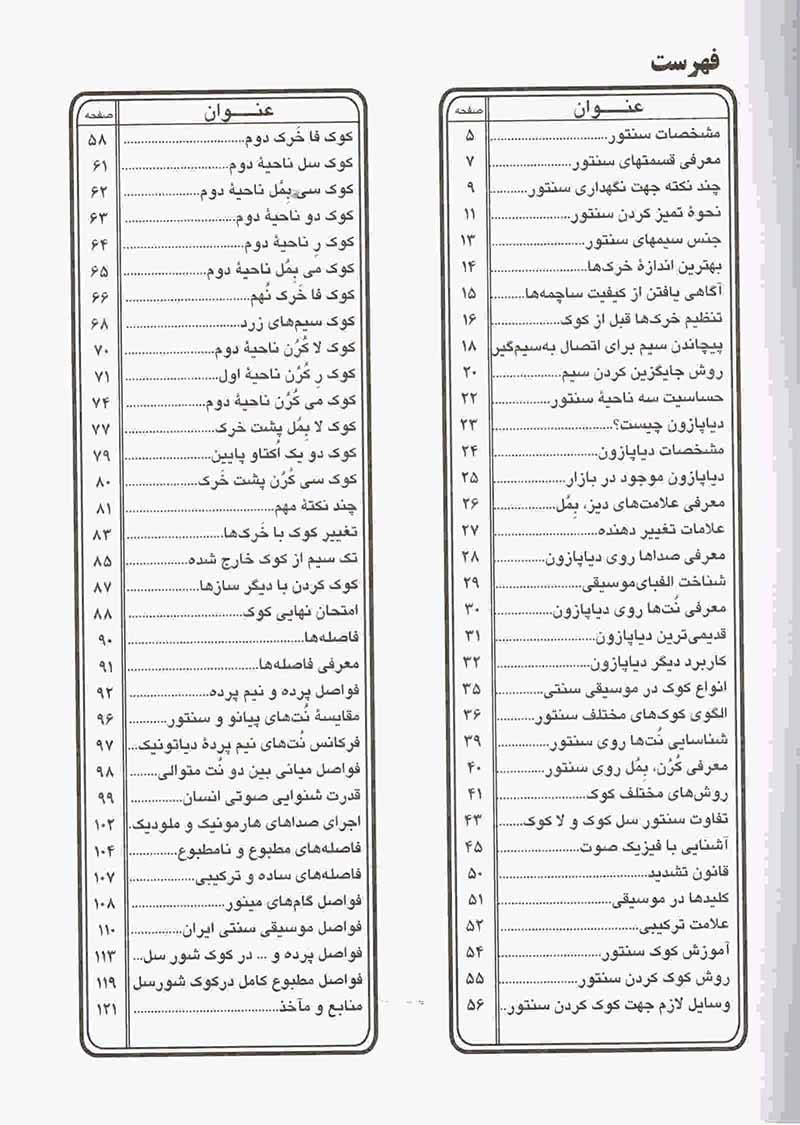 فهرست
عنـــوان صفحه
مشخصات سنتور..................... ۵
معرفی قسمتهای سنتور..................... ۷
چند نکته جهت نگهداری سنتور.......... ۹
نحوهٔ تمیز کردن سنتور..................... ۱۱
جنس سیمهای سنتور..................... ۱۳
بهترین اندازهٔ خرک‌ها..................... ۱۴
آگاهی یافتن از کیفیت ساچمه‌ها.......... ۱۵
تنظیم خرک‌ها قبل از کوک............... ۱۶
پیچاندن سیم برای اتصال به‌سیم‌گیر ۱۸
روش جایگزین کردن سیم............... ۲۰
حساسیت سه ناحیهٔ سنتور............... ۲۲
دیاپازون چیست؟..................... ۲۳
مشخصات دیاپازون..................... ۲۴
دیاپازون موجود در بازار............... ۲۵
معرفی علامت‌های دیز، بِمُل.......... ۲۶
علامات تغییر دهنده..................... ۲۷
معرفی صداها روی دیاپازون.......... ۲۸
شناخت الفبای‌موسیقی............... ۲۹
معرفی نُت‌ها روی دیاپازون.......... ۳۰
قدیمی‌ترین دیاپازون............... ۳۱
کاربرد دیگر دیاپازون............... ۳۲
انواع کوک در موسیقی سنتی.......... ۳۵
الگوی کوک‌های مختلف سنتور.......... ۳۶
شناسایی نُت‌ها روی سنتور.......... ۳۹
معرفی کُرُن، بِمُل روی سنتور.......... ۴۰
روش‌های مختلف کوک............... ۴۱
تفاوت سنتور سل کوک و لا کوک...... ۴۳
آشنایی با فیزیک صوت............... ۴۵
قانون تشدید..................... ۵۰
کلیدها در موسیقی............... ۵۱
علامت ترکیبی..................... ۵۲
آموزش کوک سنتور............... ۵۴
روش کوک کردن سنتور............... ۵۵
وسایل لازم جهت کوک کردن سنتور.. ۵۶
عنـــوان صفحه
کوک فا خَرک دوم..................... ۵۸
کوک سل ناحیهٔ دوم..................... ۶۱
کوک سی بِمُل ناحیهٔ دوم............... ۶۲
کوک دو ناحیهٔ دوم..................... ۶۳
کوک رِ ناحیهٔ دوم..................... ۶۴
کوک می بِمُل ناحیهٔ دوم............... ۶۵
کوک فا خَرک نُهم..................... ۶۶
کوک سیم‌های زرد..................... ۶۸
کوک لا کُرُن ناحیهٔ دوم............... ۷۰
کوک رِ کُرُن ناحیهٔ اول............... ۷۱
کوک می کُرُن ناحیهٔ دوم............... ۷۴
کوک لا بِمُل پشت خرک............... ۷۷
کوک دو یک اُکتاو پایین............... ۷۹
کوک سی کُرُن پشت خَرک............... ۸۰
چند نکته مهم..................... ۸۱
تغییر کوک با خَرک‌ها............... ۸۳
تک سیم از کوک خارج شده.......... ۸۵
کوک کردن با دیگر سازها.......... ۸۷
امتحان نهایی کوک............... ۸۸
فاصله‌ها..................... ۹۰
معرفی فاصله‌ها............... ۹۱
فواصل پرده و نیم پرده............... ۹۲
مقایسهٔ نُت‌های پیانو و سنتور.......... ۹۶
فرکانس نُت‌های نیم پردهٔ دیاتونیک... ۹۷
فواصل میانی بین دو نُت متوالی....... ۹۸
قدرت شنوایی صوتی انسان.......... ۹۹
اجرای صداهای هارمونیک و ملودیک. ۱۰۲
فاصله‌های مطبوع و نامطبوع.......... ۱۰۴
فاصله‌های ساده و ترکیبی.......... ۱۰۷
فواصل گام‌های مینور............... ۱۰۸
فواصل موسیقی سنتی ایران.......... ۱۱۰
فواصل پرده و ... در کوک شور سل... ۱۱۳
فواصل مطبوع کامل درکوک شورسل ۱۱۹
منابع و مآخذ..................... ۱۲۱